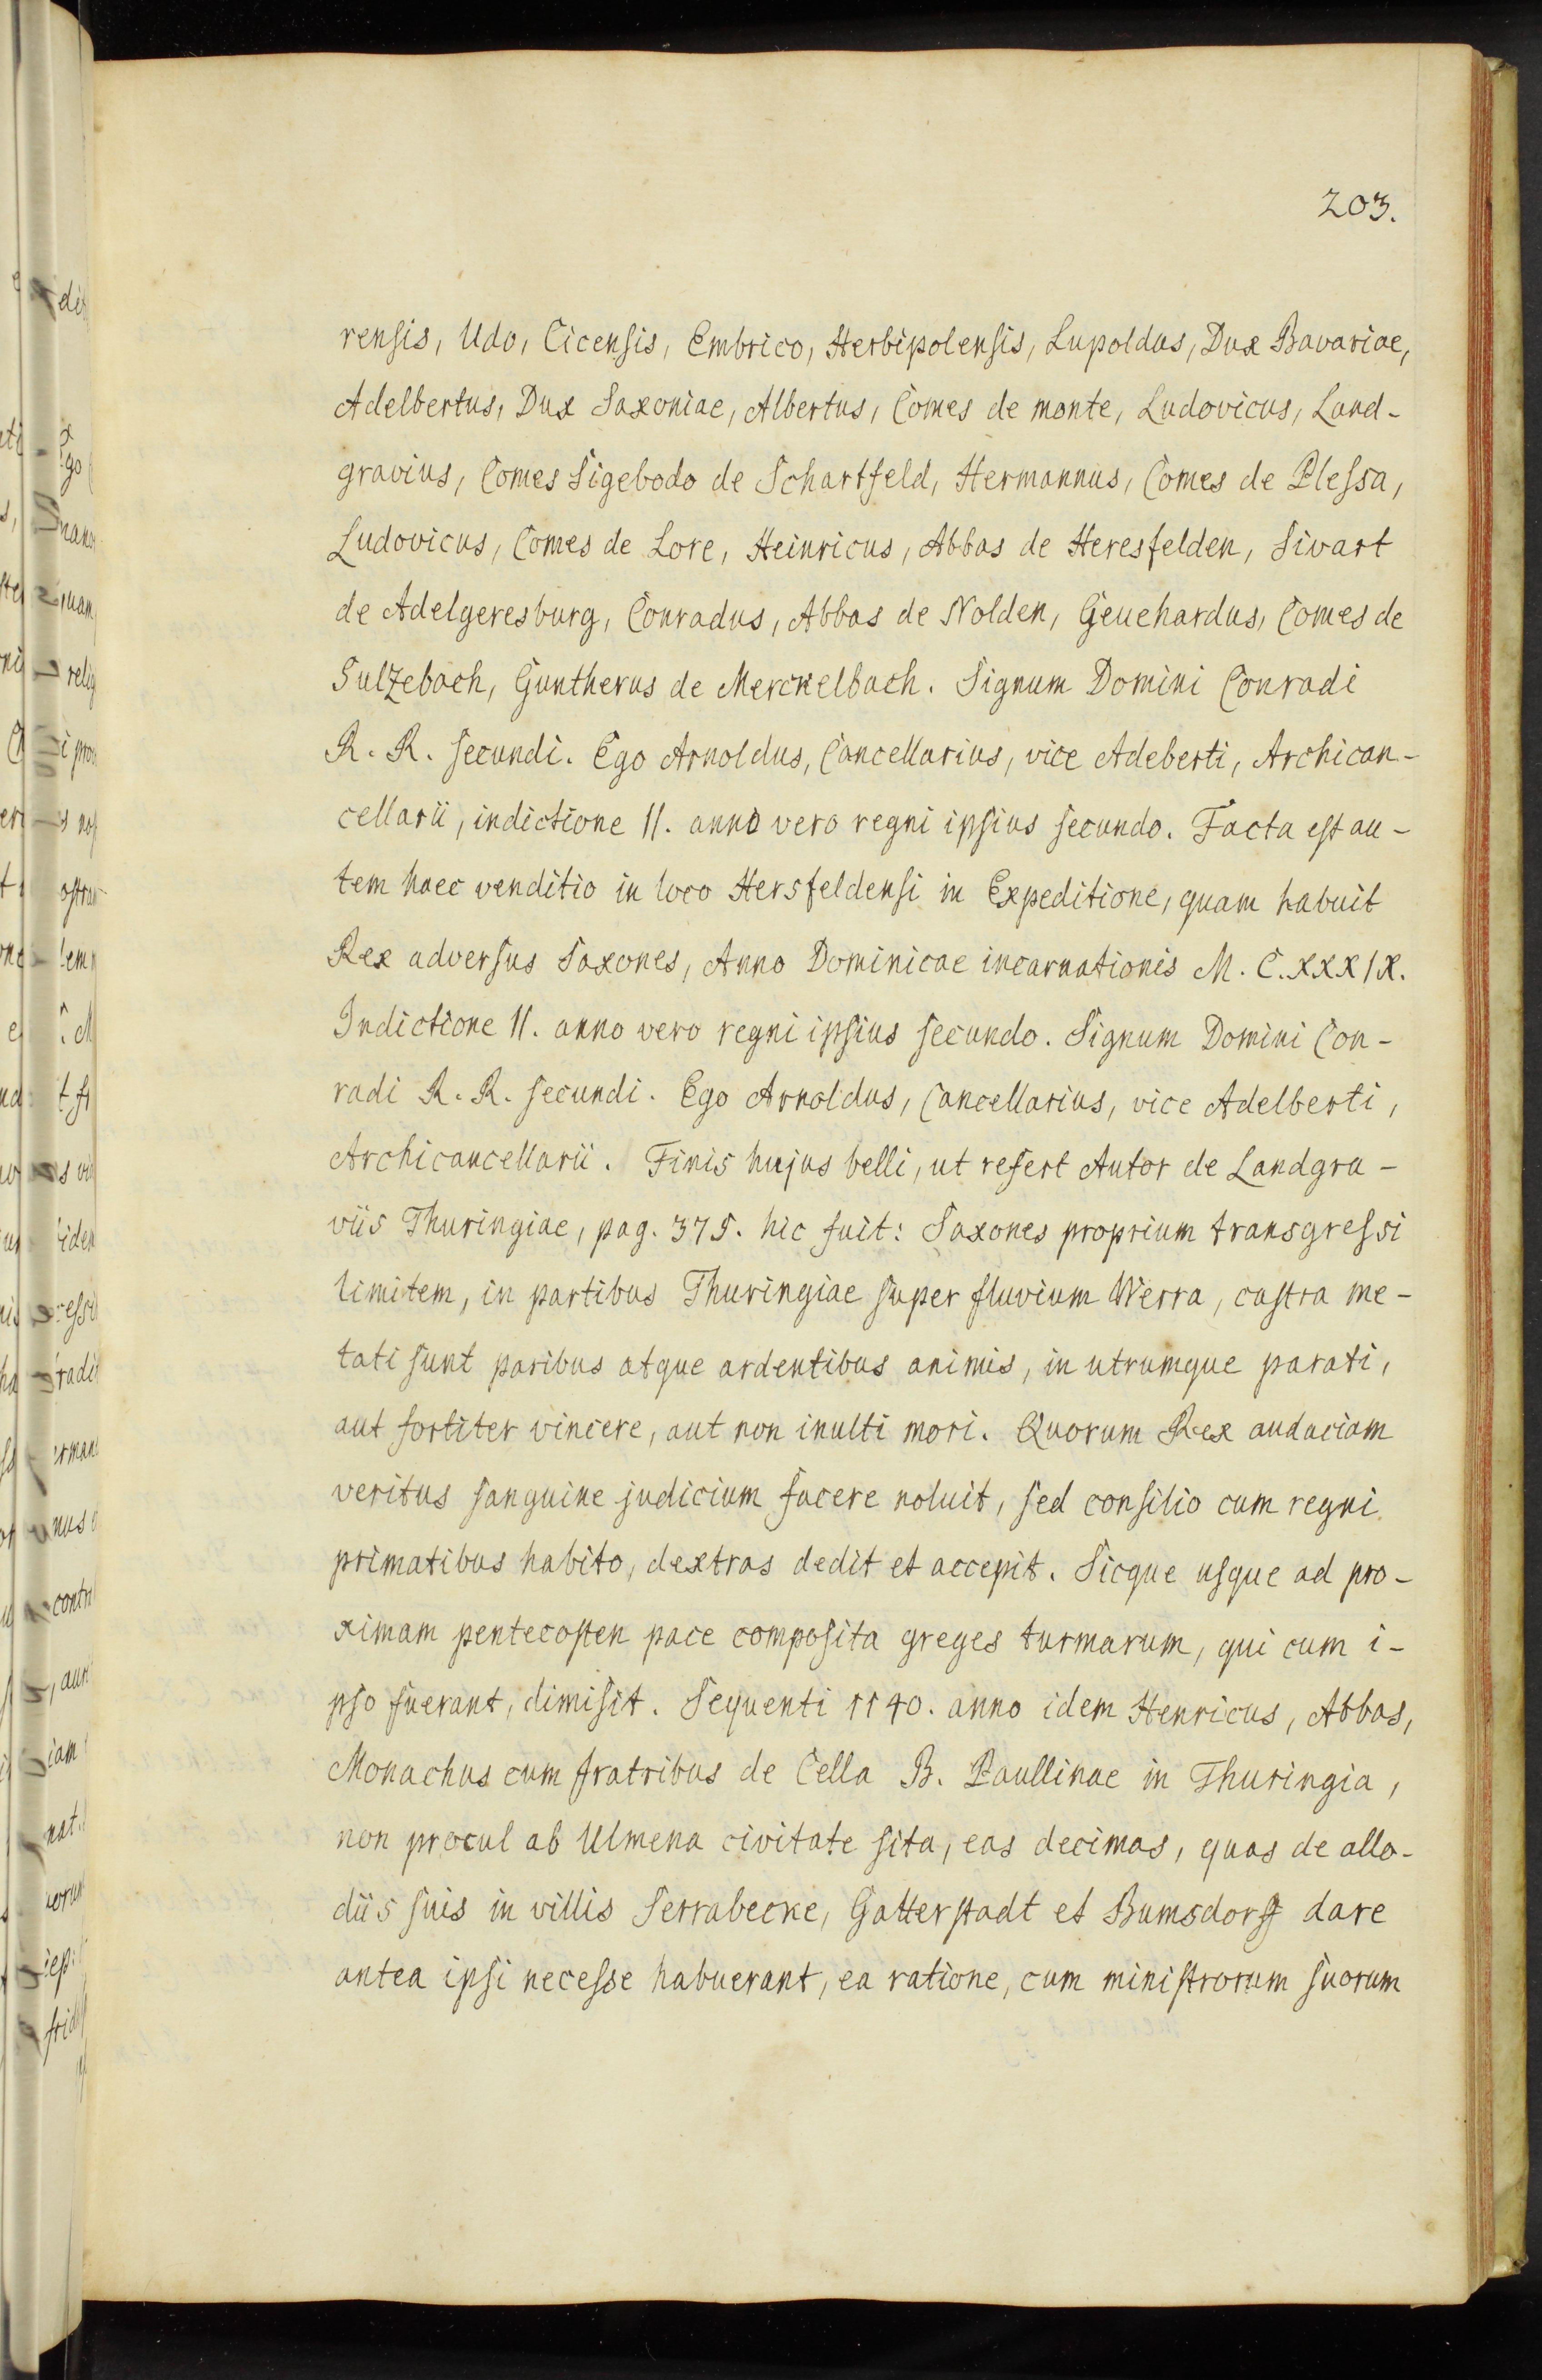 203.
rensis, Udo, Cicensis, Embrico, Herbipolensis, Lupoldus, Dux Bavariae,
Adelbertus, Dux Saxoniae, Albertus, Comes de monte, Ludovicus, Land-
gravius, Comes Sigebodo de Schartfeld, Hermannus, Comes de Plessa,
Ludovicus, Comes de Lore, Heinricus, Abbas de Heresfelden, Sivart
de Adelgeresburg, Conradus, Abbas de Nolden, Geuehardus, Comes de
Sulzebach, Guntherus de Merckelbach. Signum Domini Conradi
R. R. secundi. Ego Arnoldus, Cancellarius, vice Adeberti, Archican-
cellarii, indictione II. anno vero regni ipsius secundo. Facta est au-
tem haec venditio in loco Hersfeldensi in Expeditione, quam habuit
Rex adversus Saxones, Anno Dominicae incarnationis M. C. XXXIX.
Indictione II. anno vero regni ipsius secundo. Signum Domini Con-
radi R. R. secundi. Ego Arnoldus, Cancellarius, vice Adelberti,
Archicancellarii. Finis hujus belli, ut refert Autor de Landgra-
viis Thuringiae, pag. 375. hic fuit: Saxones proprium transgressi
limitem, in partibus Thuringiae super fluvium Werra, castra me-
tati sunt paribus atque ardentibus animis, in utrumque parati,
aut fortiter vincere, aut non inulti mori. Quorum Rex audaciam
veritus sanguine judicium facere noluit, sed consilio cum regni
primatibus habito, dextras dedit et accepit. Sicque usque ad pro-
ximam pentecosten pace composita greges turmarum, qui cum i-
pso fuerant, dimisit. Sequenti 1140. anno idem Henricus, Abbas,
Monachus cum fratribus de Cella B. Paullinae in Thuringia,
non procul ab Ulmena civitate sita, eas decimas, quas de allo-
diis suis in villis Serrabecke, Gatterstadt et Bumsdorff dare
antea ipsi necesse habuerant, ea ratione, cum ministrorum suorum